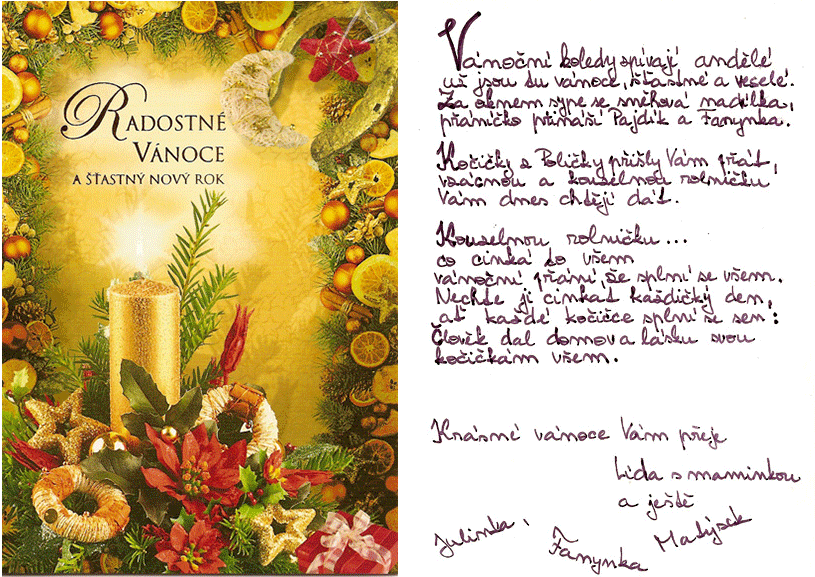 RADOSTNÉ
VÁNOCE
A ŠŤASTNÝ NOVÝ ROK
Vánoční koledy zpívají andělé
už jsou tu vánoce, šťastné a veselé.
Za oknem sype se sněhová nadílka,
přáníčko přináší Pajdík a Fanynka.
Kočičky s Poličky přišly Vám přát,
vzácnou a kouzelnou rolničku
Vám dnes chtějí dát.
Kouzelnou rolničku...
co cinká to všem
vánoční přání, že splní se všem.
Nechte ji cinkat každičký den,
ať každé kočičce splní se sen:
Člověk dal domov a lásku svou
kočičkám všem.
Krásné vánoce Vám přeje
Lída s maminkou
a ještě
Julinka,
Fanynka
Matýsek